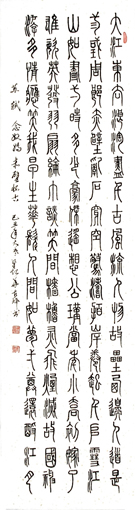 大江東去浪淘盡千古風流人物故壘西邊人道是
三國周郎赤壁亂石穿空驚濤拍岸卷起千堆雪江
山如畫一時多少豪傑遙想公瑾當年小喬初嫁了
雄姿英發羽扇綸巾談笑間檣櫓灰飛煙滅故國神
遊多情應笑我早生華髮人間如夢一尊還酹江月
蘇軾念奴嬌赤壁懷古